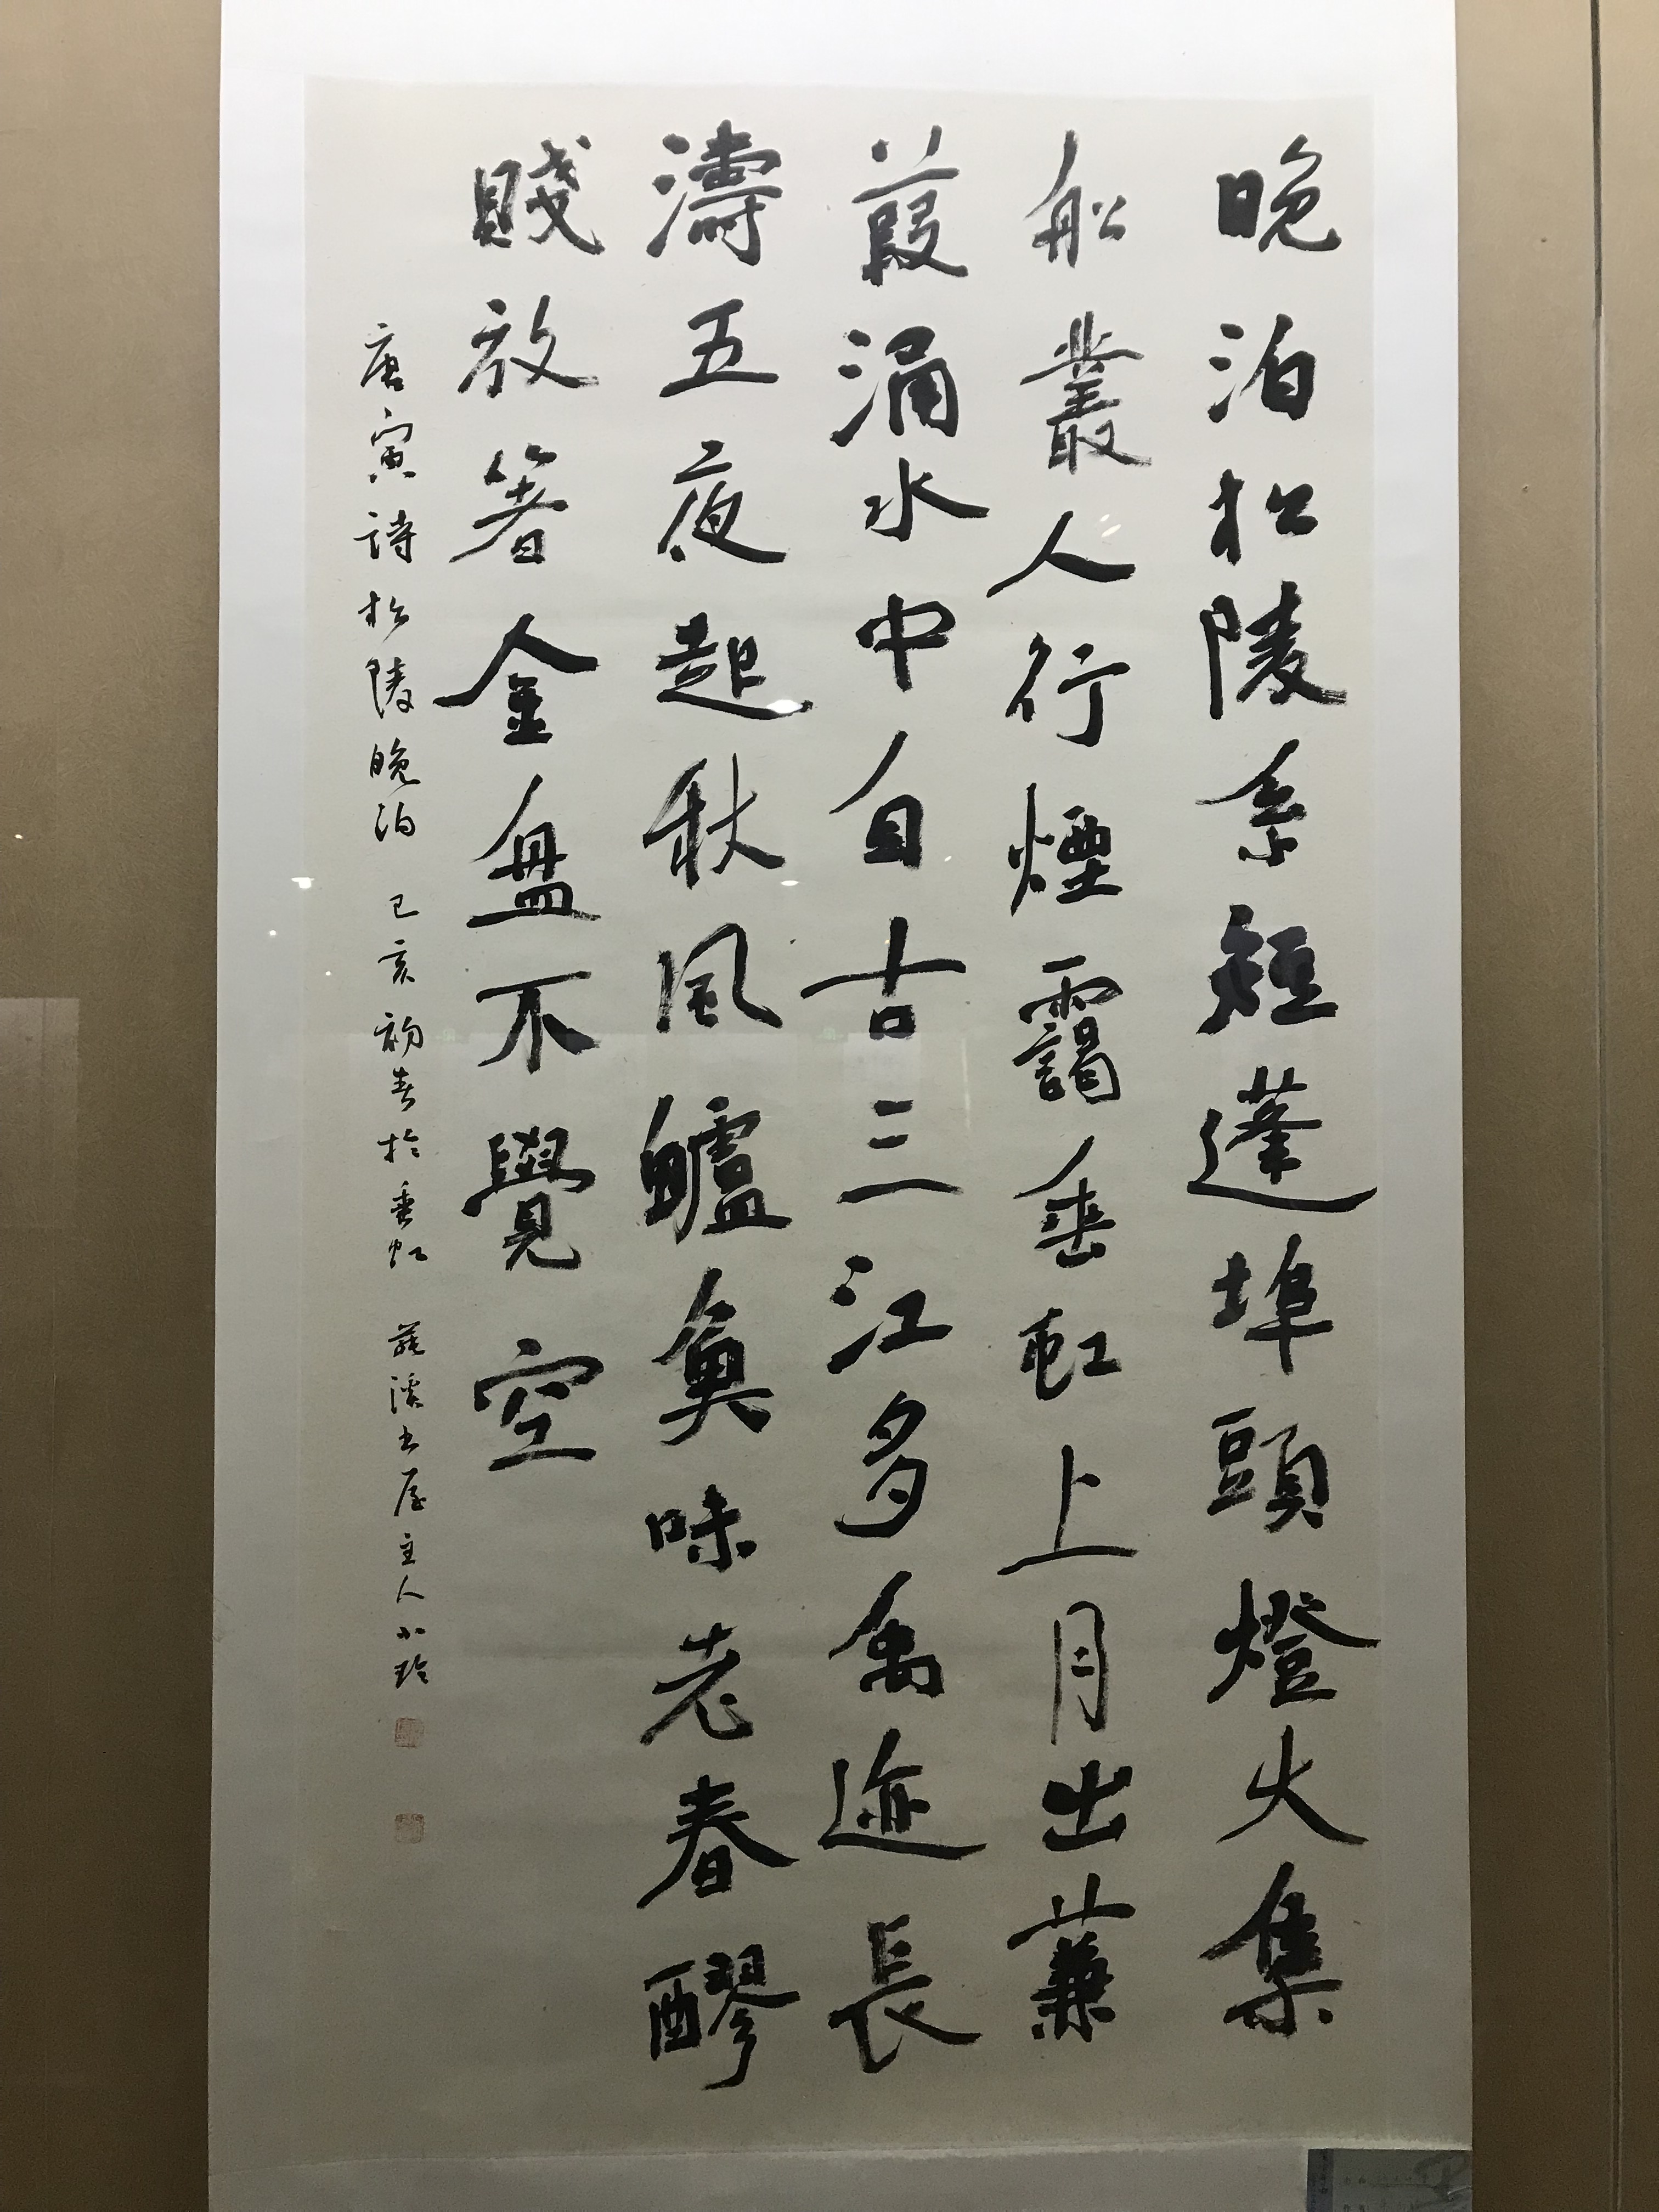 晚泊松陵系短蓬埠頭燈火集
船叢人行煙靄垂虹上月出蒹
葭涌水中自古三江多禹迹長
濤五夜起秋風鱸魚味老春醪
賤放箸金盤不覺空
唐寅詩松陵晚泊 己亥初春於垂虹 溪書屋主人小玲